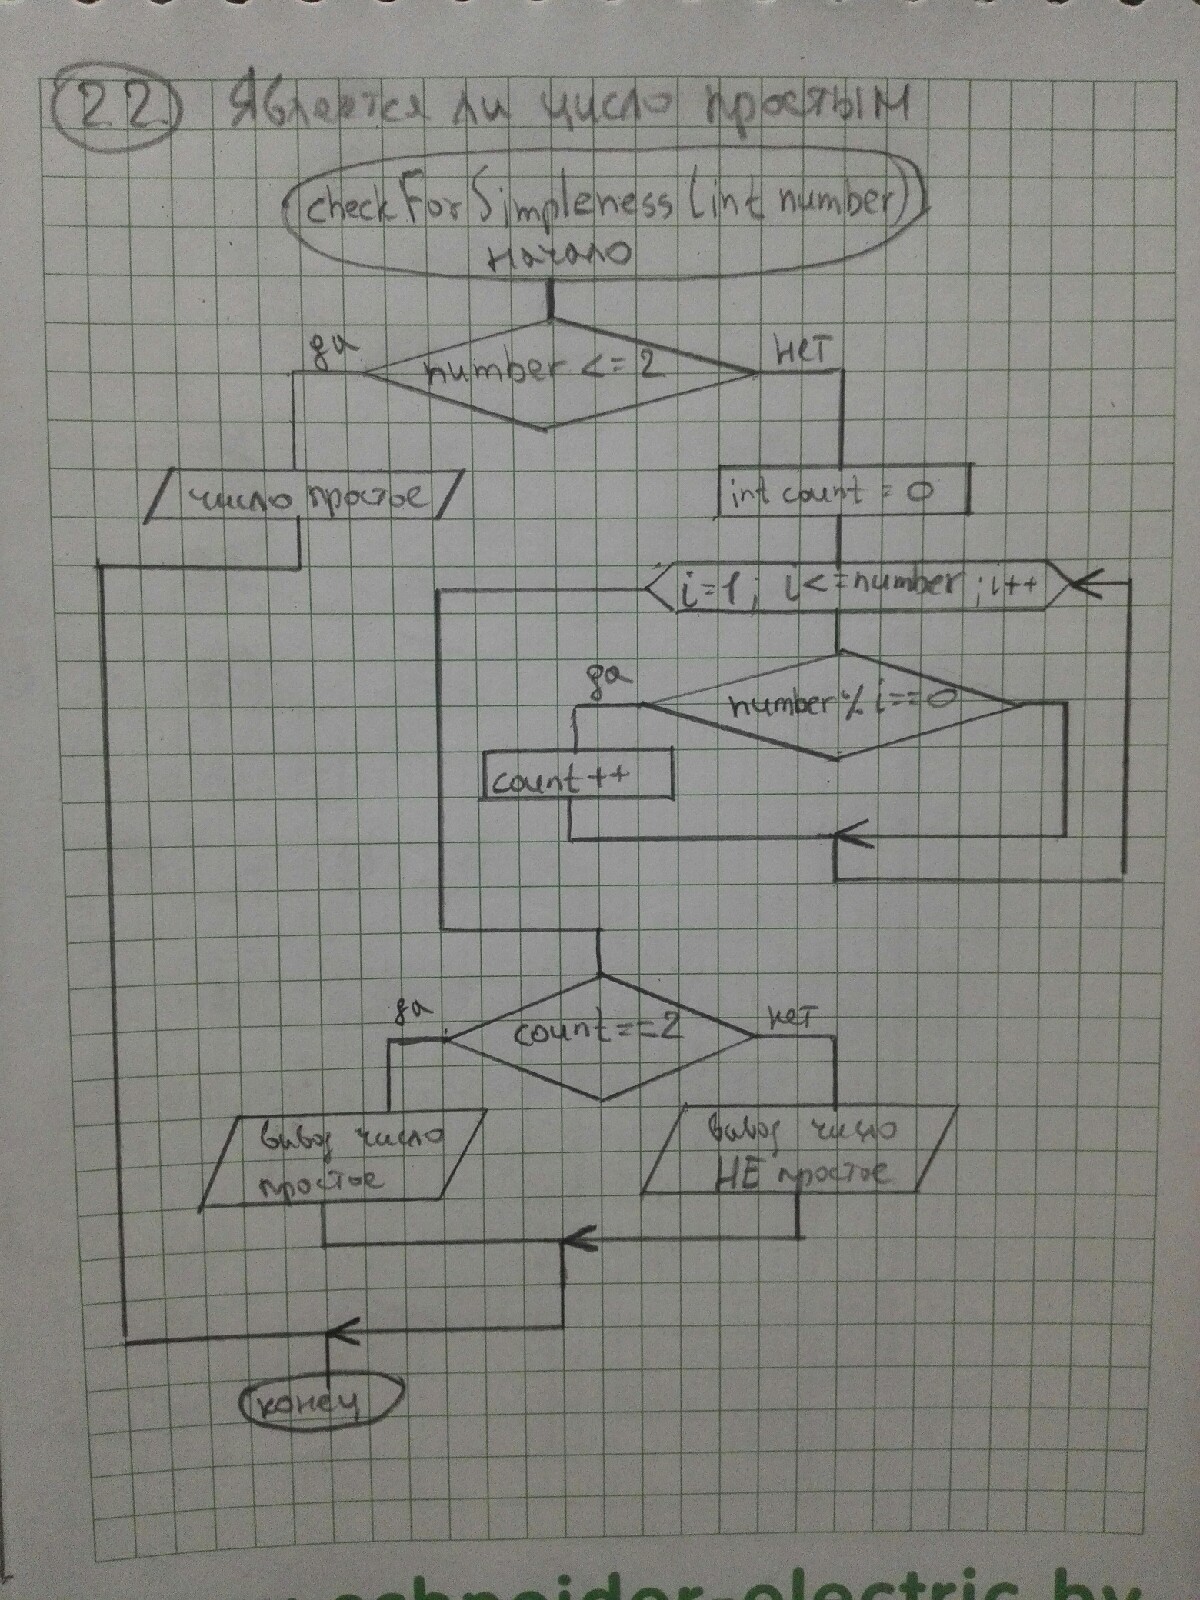 2.2. Является ли число простым
checkForSimpleness (int number)
начало
number <= 2
да
нет
число простое
int count = 0
i=1; i<=number; i++
number % i==0
да
count++
count==2
да
нет
вывод число
простое
вывод число
НЕ простое
конец
schneider-electric.by